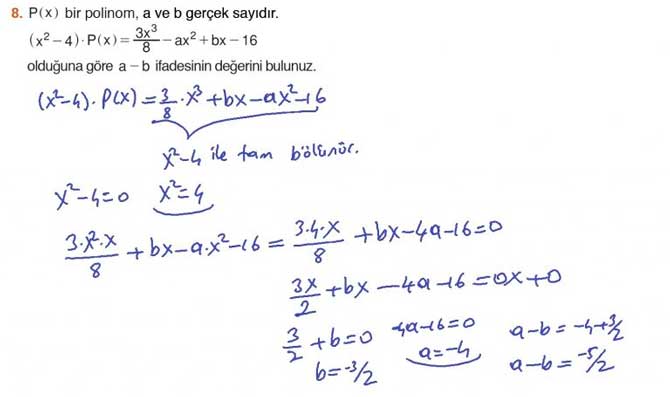 8. P(x) bir polinom, a ve b gerçek sayıdır.
(x² – 4) · P(x) = 3x³/8 – ax² + bx – 16
olduğuna göre a – b ifadesinin değerini bulunuz.
(x²–4) · P(x) = 3/8 · x³ + bx – ax² – 16
x²–4 ile tam bölünür.
x²–4=0 x²=4
3·x²·x/8 + bx – a·x² – 16 = 3·4·x/8 + bx – 4a – 16 = 0
3x/2 + bx – 4a – 16 = 0x + 0
3/2 + b = 0 -4a–16=0 a–b = –4+3/2
b = -3/2 a=–4 a–b = -5/2